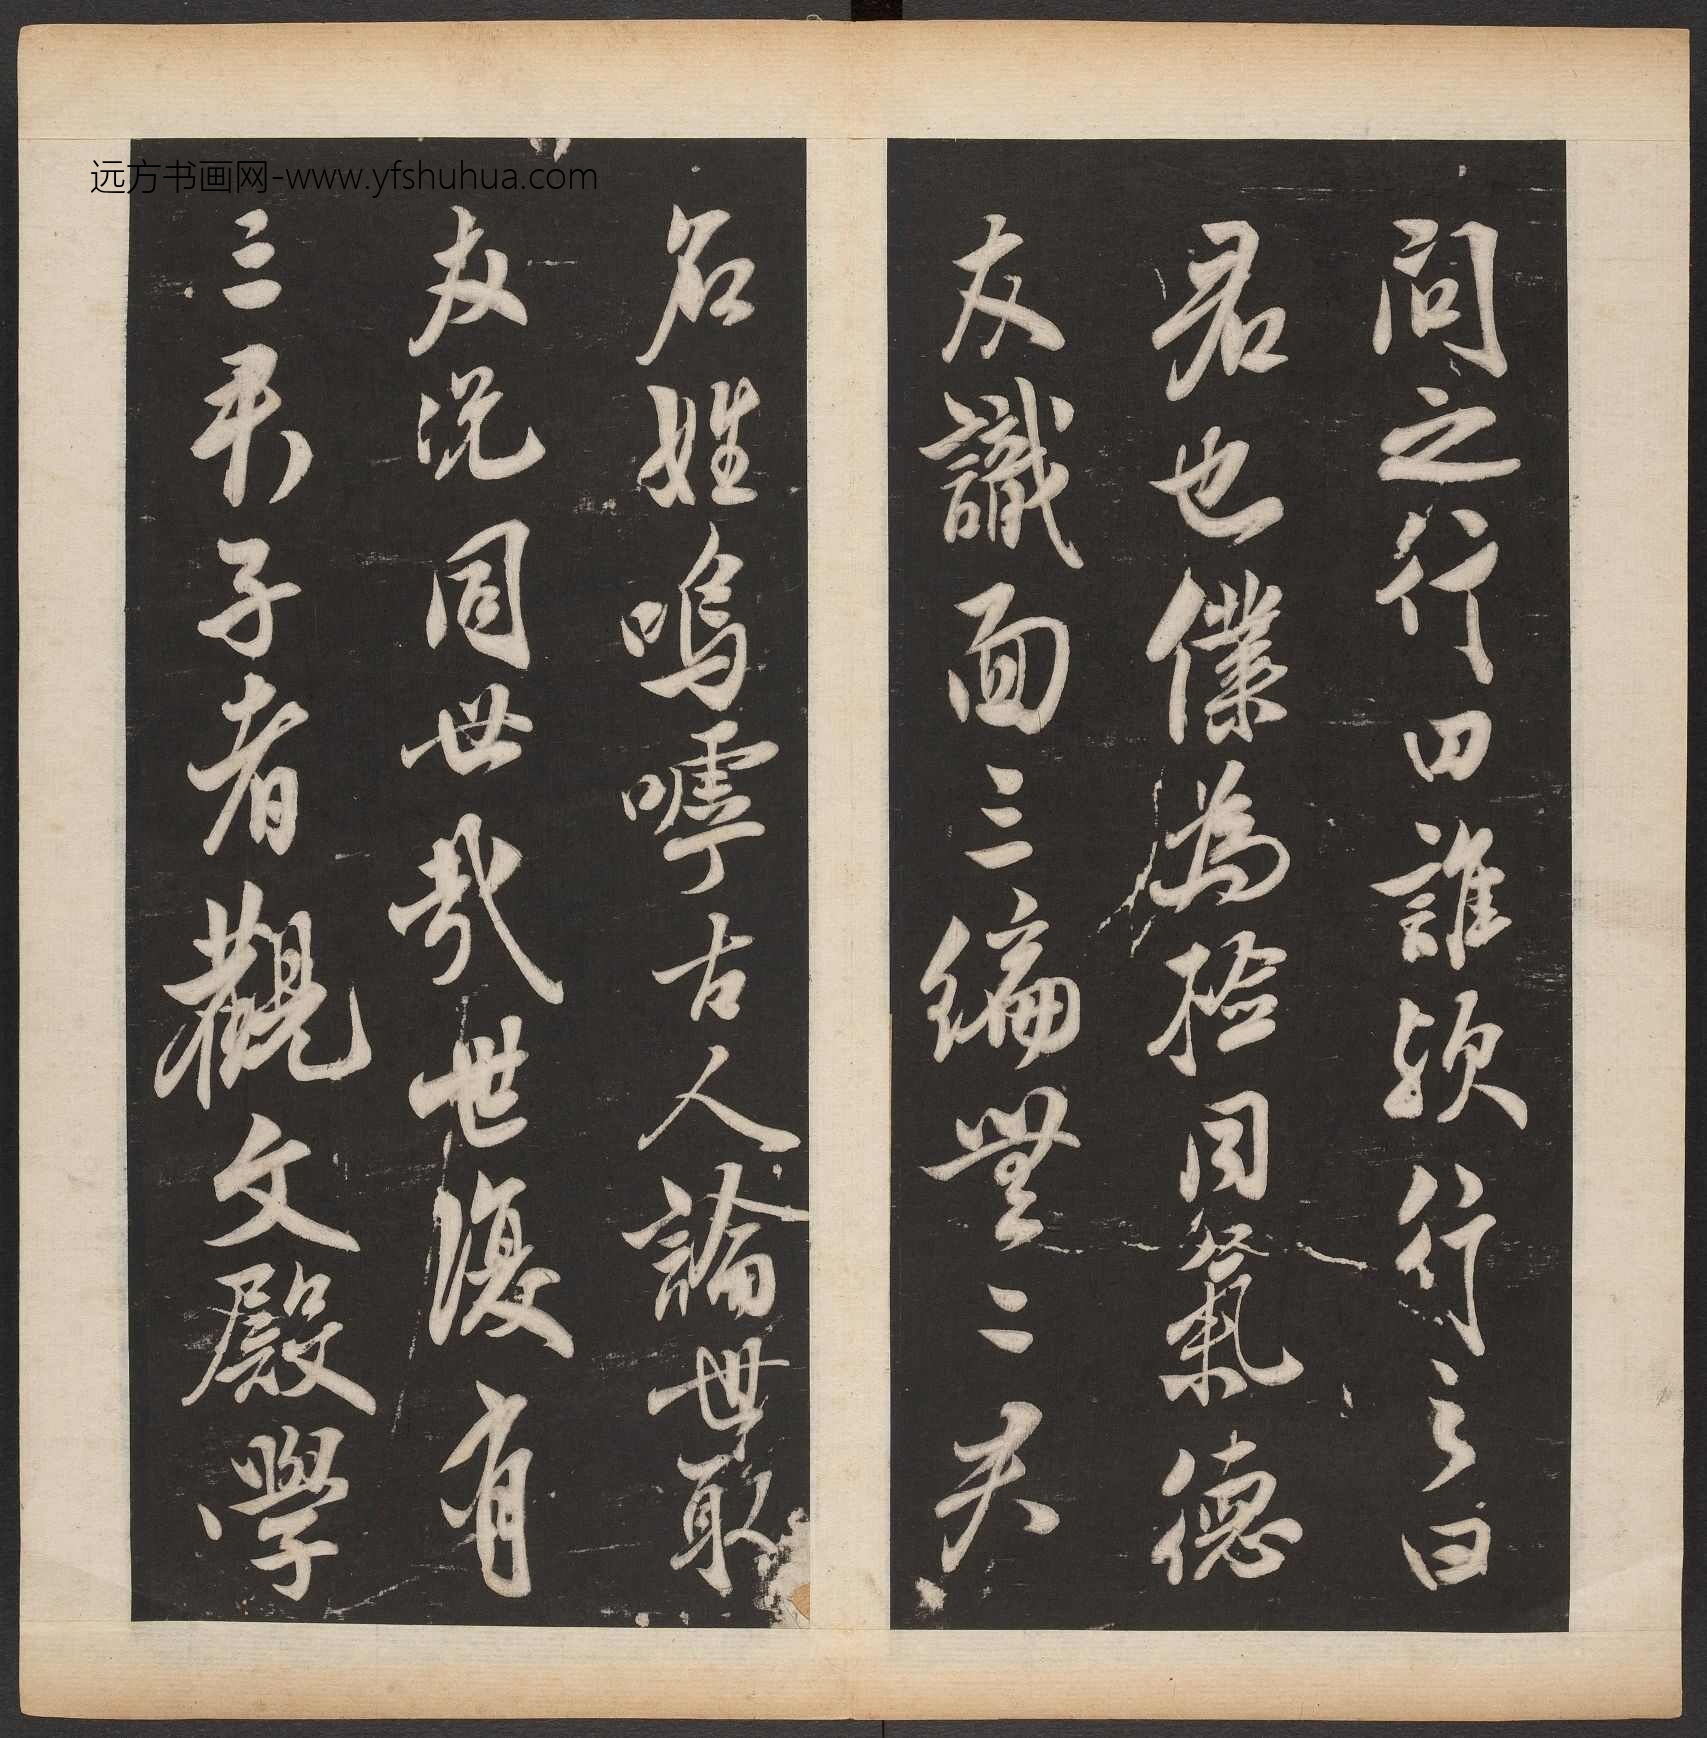 问之行田誰頴行之曰
君也僕為撿同氣德
友識面三徧無二夫
名姓嗚嘑古人論世取
友況同世哉世復有
三米子者觀文殿學
远方书画网-www.yfshuhua.com